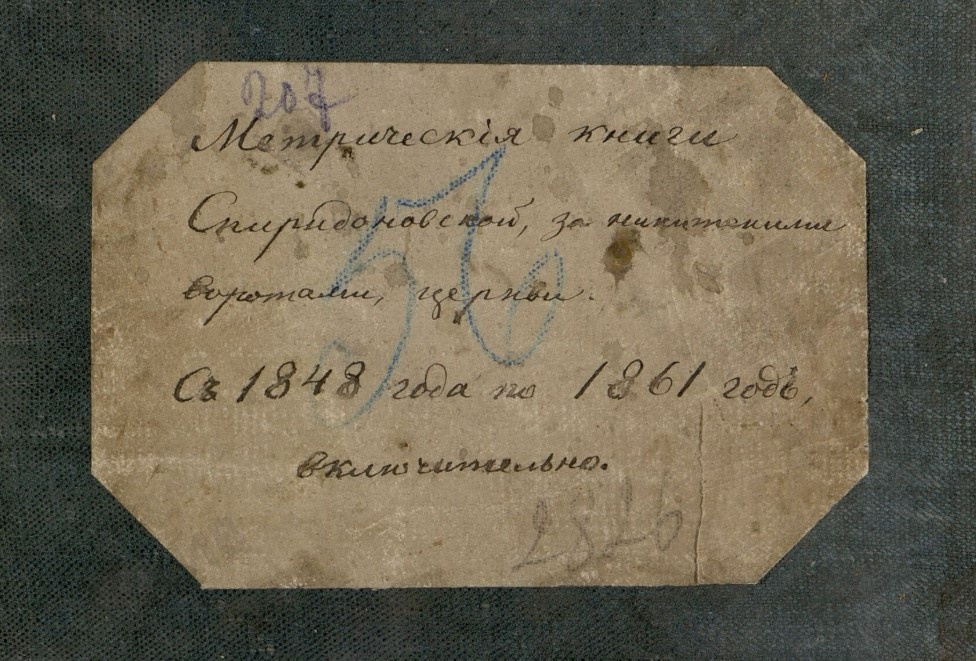 207
Метрическія книги
Спиридоновской, за никитскими
воротами, церкви.
56
Съ 1848 года по 1861 годъ,
включительно.
2826